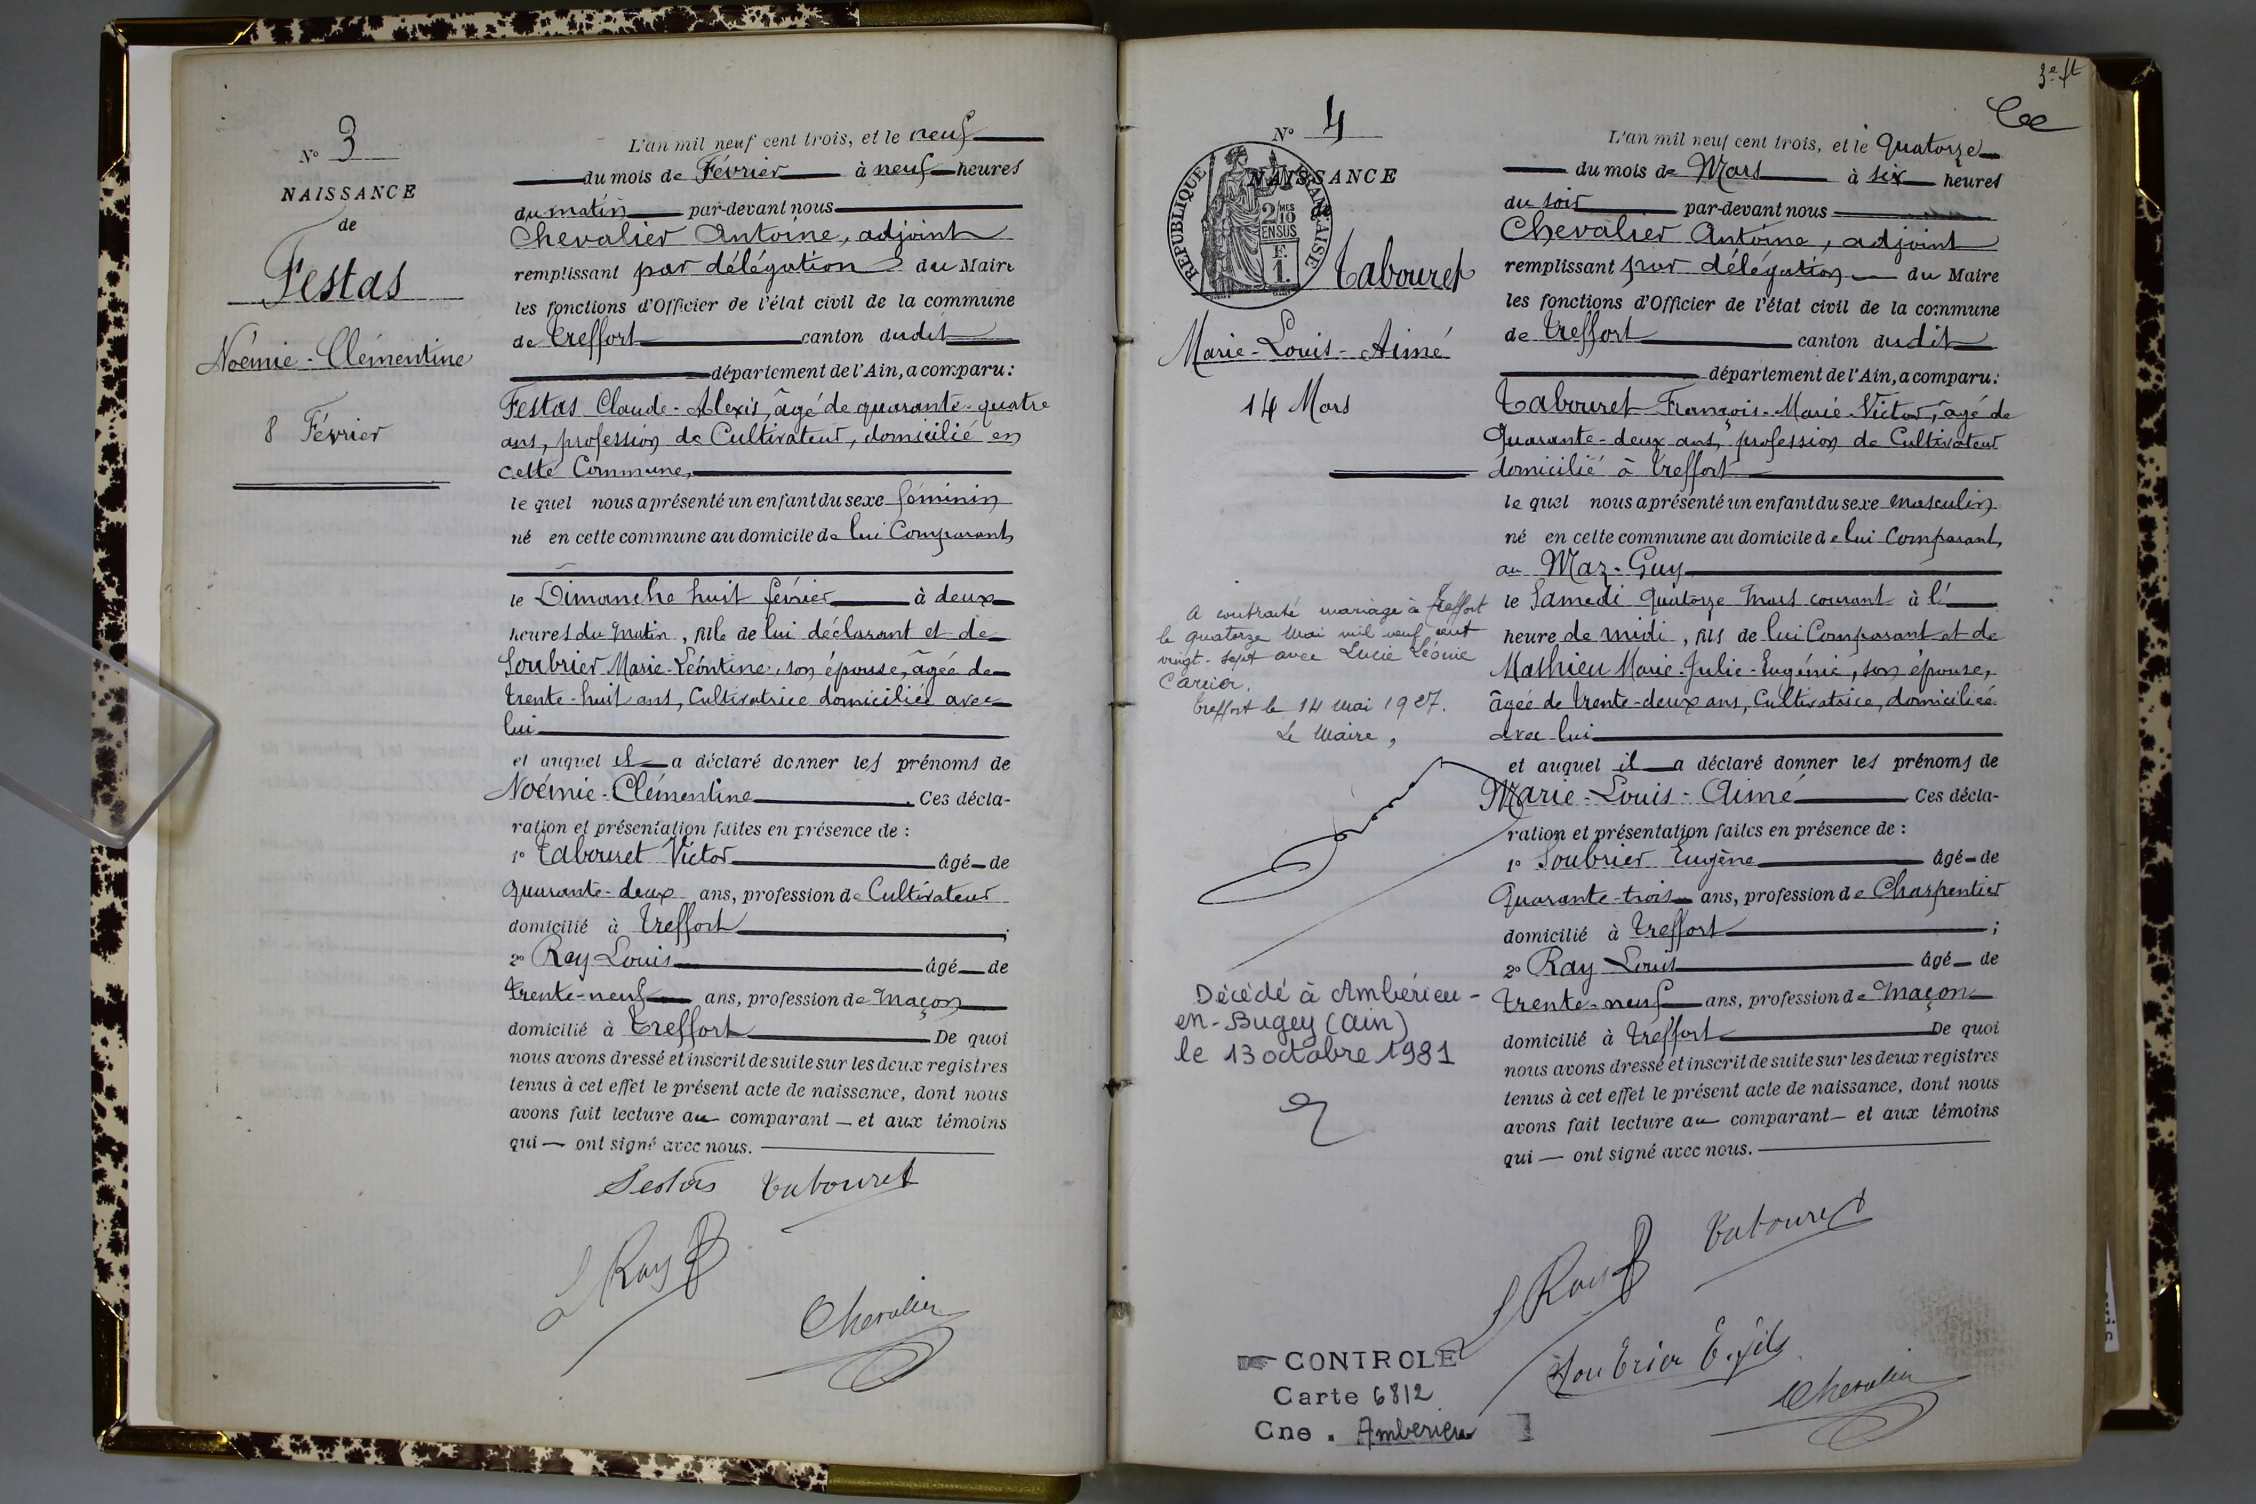 N° 3
NAISSANCE
de
Festas
Noémie-Clémentine
8 Février
L'an mil neuf cent trois, et le neuf
du mois de Février à neuf heures
du matin par-devant nous
Chevalier Antoine, adjoint
remplissant par délégation du Maire
les fonctions d'Officier de l'état civil de la commune
de Treffort canton dudit
département de l'Ain, a comparu:
Festas Claude-Alexis, âgé de quarante-quatre
ans, profession de Cultivateur, domicilié en
cette Commune,
le quel nous a présenté un enfant du sexe féminin
né en cette commune au domicile de lui Comparant
le Dimanche huit février à deux
heures du matin, fille de lui déclarant et de
Soubrier Marie-Léontine, son épouse, âgée de
trente-huit ans, Cultivatrice domiciliée avec
lui
et auquel il a déclaré donner les prénoms de
Noémie-Clémentine. Ces décla-
ration et présentation faites en présence de :
1° Tabouret Victor âgé de
quarante-deux ans, profession de Cultivateur
domicilié à Treffort ;
2° Ray Louis âgé de
trente-neuf ans, profession de Maçon
domicilié à Treffort De quoi
nous avons dressé et inscrit de suite sur les deux registres
tenus à cet effet le présent acte de naissance, dont nous
avons fait lecture au comparant et aux témoins
qui ont signé avec nous.
Festas Tabouret
L Ray
Chevalier
3e ft
N° 4
NAISSANCE
de
REPUBLIQUE FRANÇAISE
2/10 MES
EN SUS
F.
1.
Tabouret
Marie-Louis-Aimé
14 Mars
A contracté mariage à Treffort
le quatorze Mai mil neuf cent
vingt-sept avec Lucie Léonie
Carrier.
Treffort le 14 Mai 1927.
Le Maire,
Décédé à Ambérieu-
en-Bugey (Ain)
le 13 octobre 1981
CONTROLE
Carte 6812
Cne . Amberieu
L'an mil neuf cent trois, et le Quatorze
du mois de Mars à six heures
du soir par-devant nous
Chevalier Antoine, adjoint
remplissant par délégation du Maire
les fonctions d'Officier de l'état civil de la commune
de Treffort canton dudit
département de l'Ain, a comparu:
Tabouret François-Marie-Victor, âgé de
Quarante-deux ans, profession de Cultivateur
domicilié à Treffort
le quel nous a présenté un enfant du sexe masculin
né en cette commune au domicile de lui Comparant,
au Maz-Guy
le Samedi quatorze Mars courant à l'
heure de midi, fils de lui Comparant et de
Mathieu Marie-Julie-Eugénie, son épouse,
âgée de trente-deux ans, Cultivatrice, domiciliée
avec lui
et auquel il a déclaré donner les prénoms de
Marie-Louis-Aimé. Ces décla-
ration et présentation faites en présence de :
1° Soubrier Eugène âgé de
Quarante-trois ans, profession de Charpentier
domicilié à Treffort ;
2° Ray Louis âgé de
trente-neuf ans, profession de Maçon
domicilié à Treffort De quoi
nous avons dressé et inscrit de suite sur les deux registres
tenus à cet effet le présent acte de naissance, dont nous
avons fait lecture au comparant et aux témoins
qui ont signé avec nous.
Tabouret
L Ray
Soubrier E. fils
Chevalier